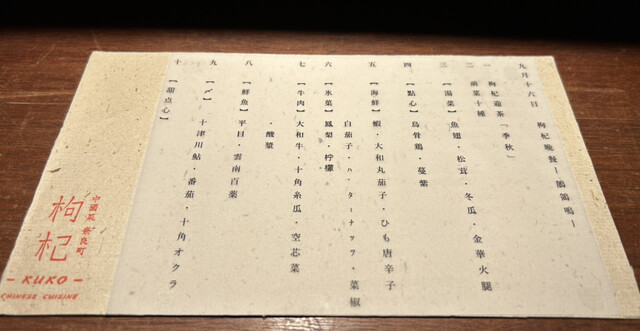 九月十六日　枸杞晩餐ー鶺鴒鳴ー
一　枸杞遊茶「季秋」
二　前菜十種
三　【湯菜】魚翅・松茸・冬瓜・金華火腿
四　【點心】烏骨鶏・蔓紫
五　【海鮮】蝦・大和丸茄子・ひも唐辛子
白茄子・ハターナッツ・菜椒
六　【氷菓】鳳梨・柠檬
七　【牛肉】大和牛・十角糸瓜・空芯菜
・酸漿
八　【鮮魚】平目・雲南百薬
九　【〆】　十津川鮎・番茄・十角オクラ
十　【甜点心】
中國菜 奈良町
枸杞
- KUKO -
CHINESE CUISINE